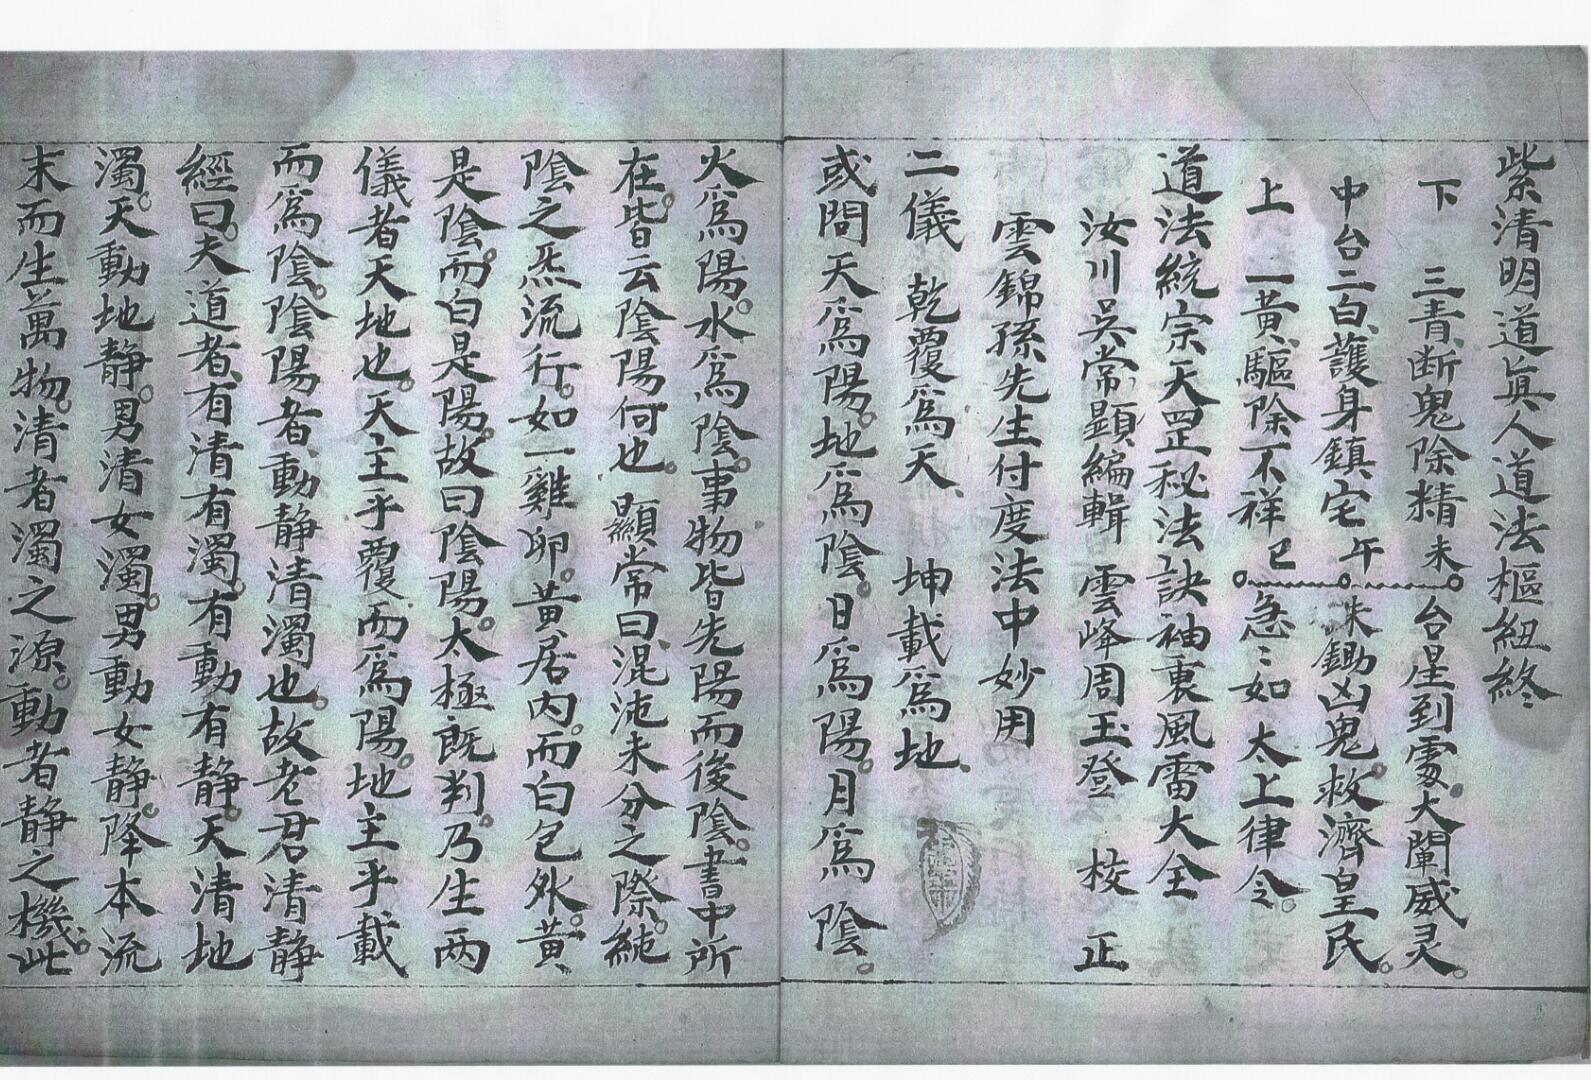 紫清明道眞人道法樞紐終
下 三青断鬼除精 未 台星到處。大闡威灵。
中台二白、護身鎮宅 午 誅鋤凶鬼。救濟皇民。
上 一黄、驅除不祥 巳 急〻如 太上律令。
道法統宗天罡秘法訣袖裏風雷大全
汝川吳常顯編輯 雲峰周玉登 校 正
雲錦孫先生付度法中妙用
二儀 乾覆爲天、 坤載爲地、
或問天爲陽。地爲陰。日爲陽。月爲陰。
火爲陽。水爲陰。事物皆先陽而後陰。書中所
在皆云陰陽何也。顯常曰、混沌未分之際。純
陰之炁流行。如一雞卵。黃居内。而白包外。黃、
是陰。而白是陽。故曰陰陽。太極既判。乃生两
儀者天地也。天主乎覆而爲陽。地主乎載
而爲陰。陰陽者、動静清濁也。故老君清静
經曰。夫道者、有清有濁。有動有静。天清地
濁。天動地静。男清女濁。男動女静。降本流
末而生萬物。清者濁之源。動者静之機。此